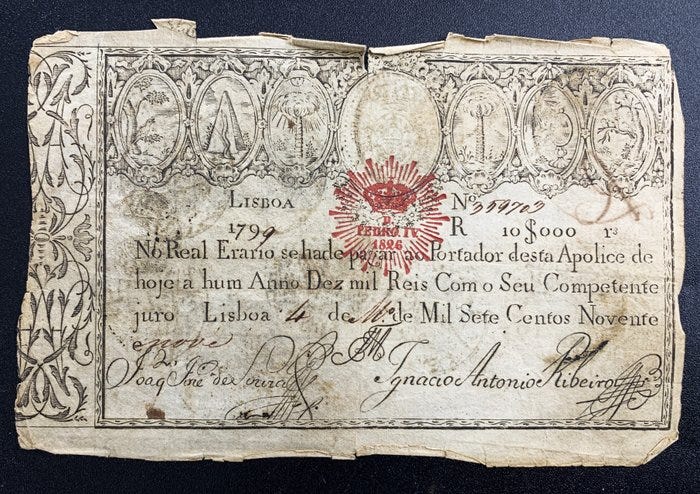 LISBOA Nº 354703
1799 R 10$000 rs
D.
PEDRO IV
1826
No Real Erario se hade pagar ao Portador desta Apolice de
hoje a hum Anno Dez mil Reis Com o Seu Competente
juro Lisboa 4 de Mº de Mil Sete Centos Novente
e nove
Joaq Joze de Souza Ignacio Antonio Ribeiro